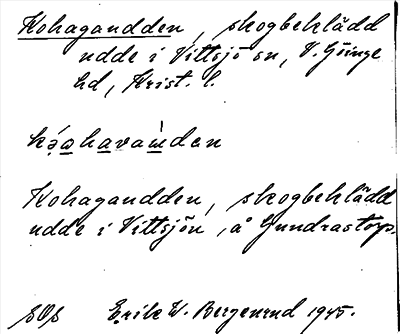 Kohagaudden, skogbeklädd
udde i Vittsjö sn, V. Göinge
hd, Krist. l.
Kohagaudden, skogbeklädd
udde i Vittsjön, å Gundrastorp.
Erik W. Bergenrud 1945.